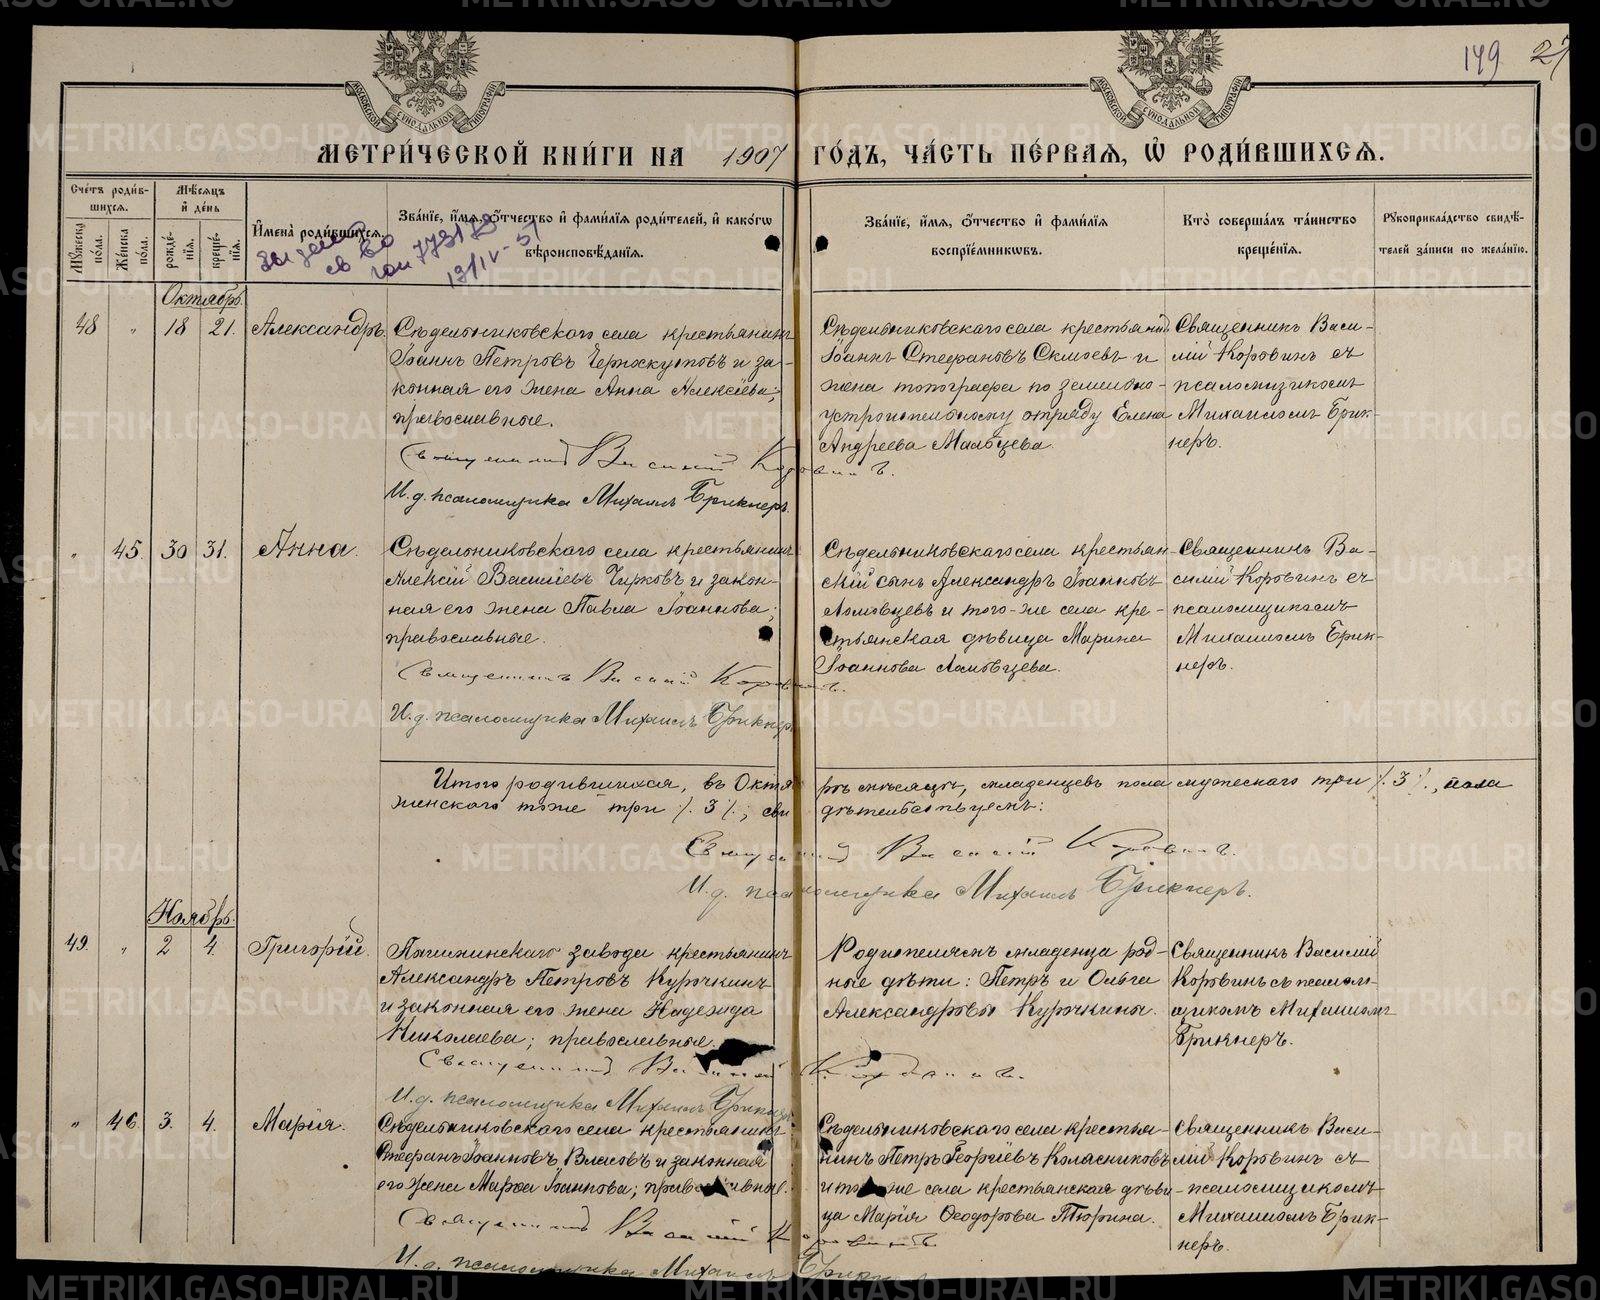 149 27
МОСКОВСКОЙ СѴНОДАЛЬНОЙ ТИПОГРАФІИ
МЕТРИ́ЧЕСКОЙ КНИ́ГИ НА 1907 ГО́ДЪ, ЧА́СТЬ ПЕ́РВАЯ, Ѡ҆ РОДИ́ВШИХСЯ.
Сче́тъ роди́вшихся.
Мѣ́сяцъ и҆ де́нь
Му́жеска по́ла.
Же́нска по́ла.
рожде́нїя.
креще́нїя.
И҆мена̀ роди́вшихся.
Зва́нїе, и҆́мя, ѻ҆́тчество и҆ фами́лїя роди́телей, и҆ како́гѡ
вѣроисповѣ́данїя.
Зва́нїе, и҆́мя, ѻ҆́тчество и҆ фами́лїя
воспрїе́мниковъ.
Кто̀ соверша́лъ та́инство
креще́нїя.
Рꙋкоприкла́дство свидѣ́-
телей за́писи по жела́нїю.
19/IV-57
Октябрь.
48 " 18 21. Александръ.
Сѣдельниковскаго села крестьянинъ
Іоаннъ Петровъ Черноскутовъ и за-
конная его жена Анна Алексѣева;
православные.
Священникъ Василій Коровинъ.
И.д. псаломщика Михаилъ Брикнеръ.
Сѣдельниковскаго села крестьянинъ
Іоаннъ Стефановъ и
жена топографа по землеу-
устроительному отряду Елена
Андреева Мальцева.
Священникъ Васи-
лій Коровинъ съ
псаломщикомъ
Михаиломъ Брик-
неръ.
" 45. 30 31. Анна.
Сѣдельниковскаго села крестьянинъ
Алексій Васильевъ Чирковъ и закон-
ная его жена Павла Іоаннова;
православные.
Священникъ Василій Коровинъ.
И.д. псаломщика Михаилъ Брикнеръ.
Сѣдельниковскаго села крестьян-
скій сынъ Александръ Іоанновъ
Ломовцевъ и того-же села кре-
стьянская дѣвица Марина
Іоаннова Ломовцева.
Священникъ Ва-
силій Коровинъ съ
псаломщикомъ
Михаиломъ Брик-
неръ.
Итого родившихся, въ Октябрѣ мѣсяцѣ, младенцевъ пола мужескаго три ∕. 3 ∕., пола
женскаго тоже три ∕. 3 ∕.; свидѣтельствуемъ:
Священникъ Василій Коровинъ.
И.д. псаломщика Михаилъ Брикнеръ.
Ноябрь.
49. " 2 4. Григорій.
завода крестьянинъ
Александръ Петровъ Курочкинъ
и законная его жена Надежда
Николаева; православные.
Священникъ Василій Коровинъ.
И.д. псаломщика Михаилъ Брикнеръ.
младенца род-
ные дѣти: Петръ и Ольга
Александровы Курочкины.
Священникъ Василій
Коровинъ съ псалом-
щикомъ Михаиломъ
Брикнеръ.
" 46. 3. 4. Марія.
Сѣдельниковскаго села крестьянинъ
Стефанъ Іоанновъ Власовъ и законная
его жена Марѳа Іоаннова; православные.
Священникъ Василій Коровинъ
И.д. псаломщика Михаилъ Брикнеръ
Сѣдельниковскаго села крестья-
нинъ Петръ Георгіевъ Колясниковъ
и того-же села крестьянская дѣви-
ца Марія Ѳеодорова Тюрина.
Священникъ Васи-
лій Коровинъ съ
псаломщикомъ
Михаиломъ Брик-
неръ.
METRIKI.GASO-URAL.RU